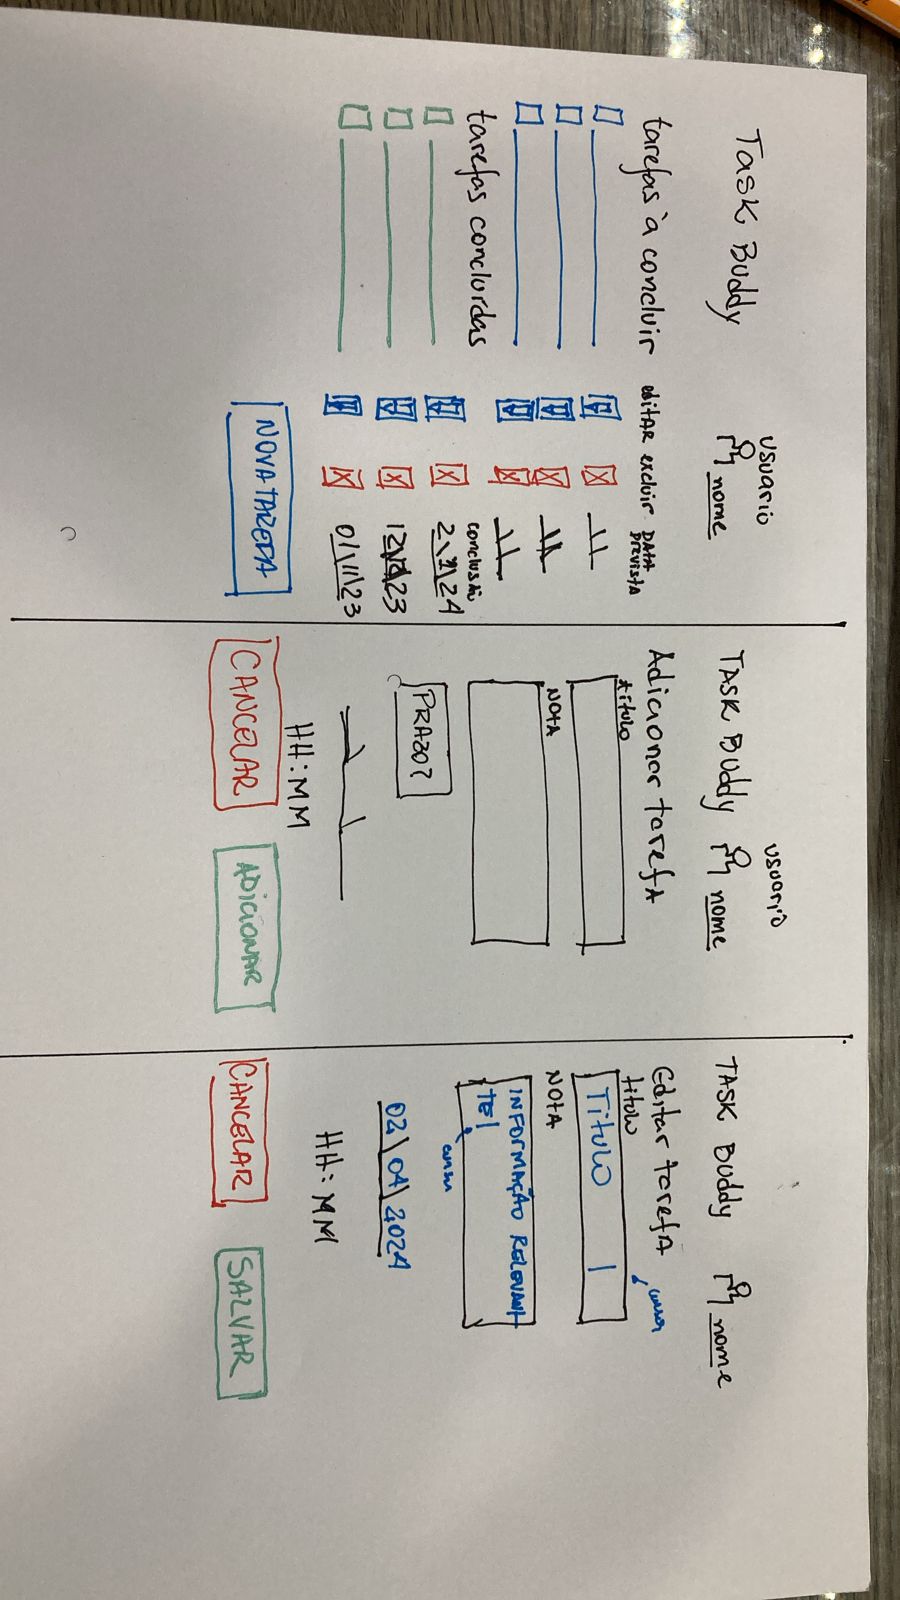 Task Buddy
usuario
nome
tarefas à concluir
editar excluir DATA prevista
tarefas concluídas
conclusão
NOVA TAREFA
TASK Buddy
usuario
nome
Adicionar tarefA
título
NOTA
PRAZO?
HH:MM
CANCELAR
ADICIONAR
TASK Buddy
nome
Editar tarefA
título
Título |
cursor
NOTA
INFORMAÇÃO RELEVANT
TE|
cursor
02/04/2024
HH:MM
CANCELAR
SALVAR